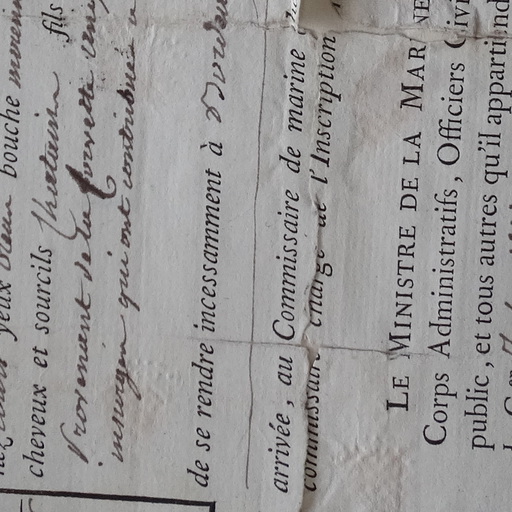 yeux bleus bouche moyenne
cheveux et sourcils châtains fils
Provenant de la corvette
insurgés qui ont contribué
de se rendre incessamment à Bordeaux
arrivée, au Commissaire de marine
commissaire chargé de l'Inscription
LE MINISTRE DE LA MAR
Corps Administratifs, Officiers Civi
public, et tous autres qu'il appartiend